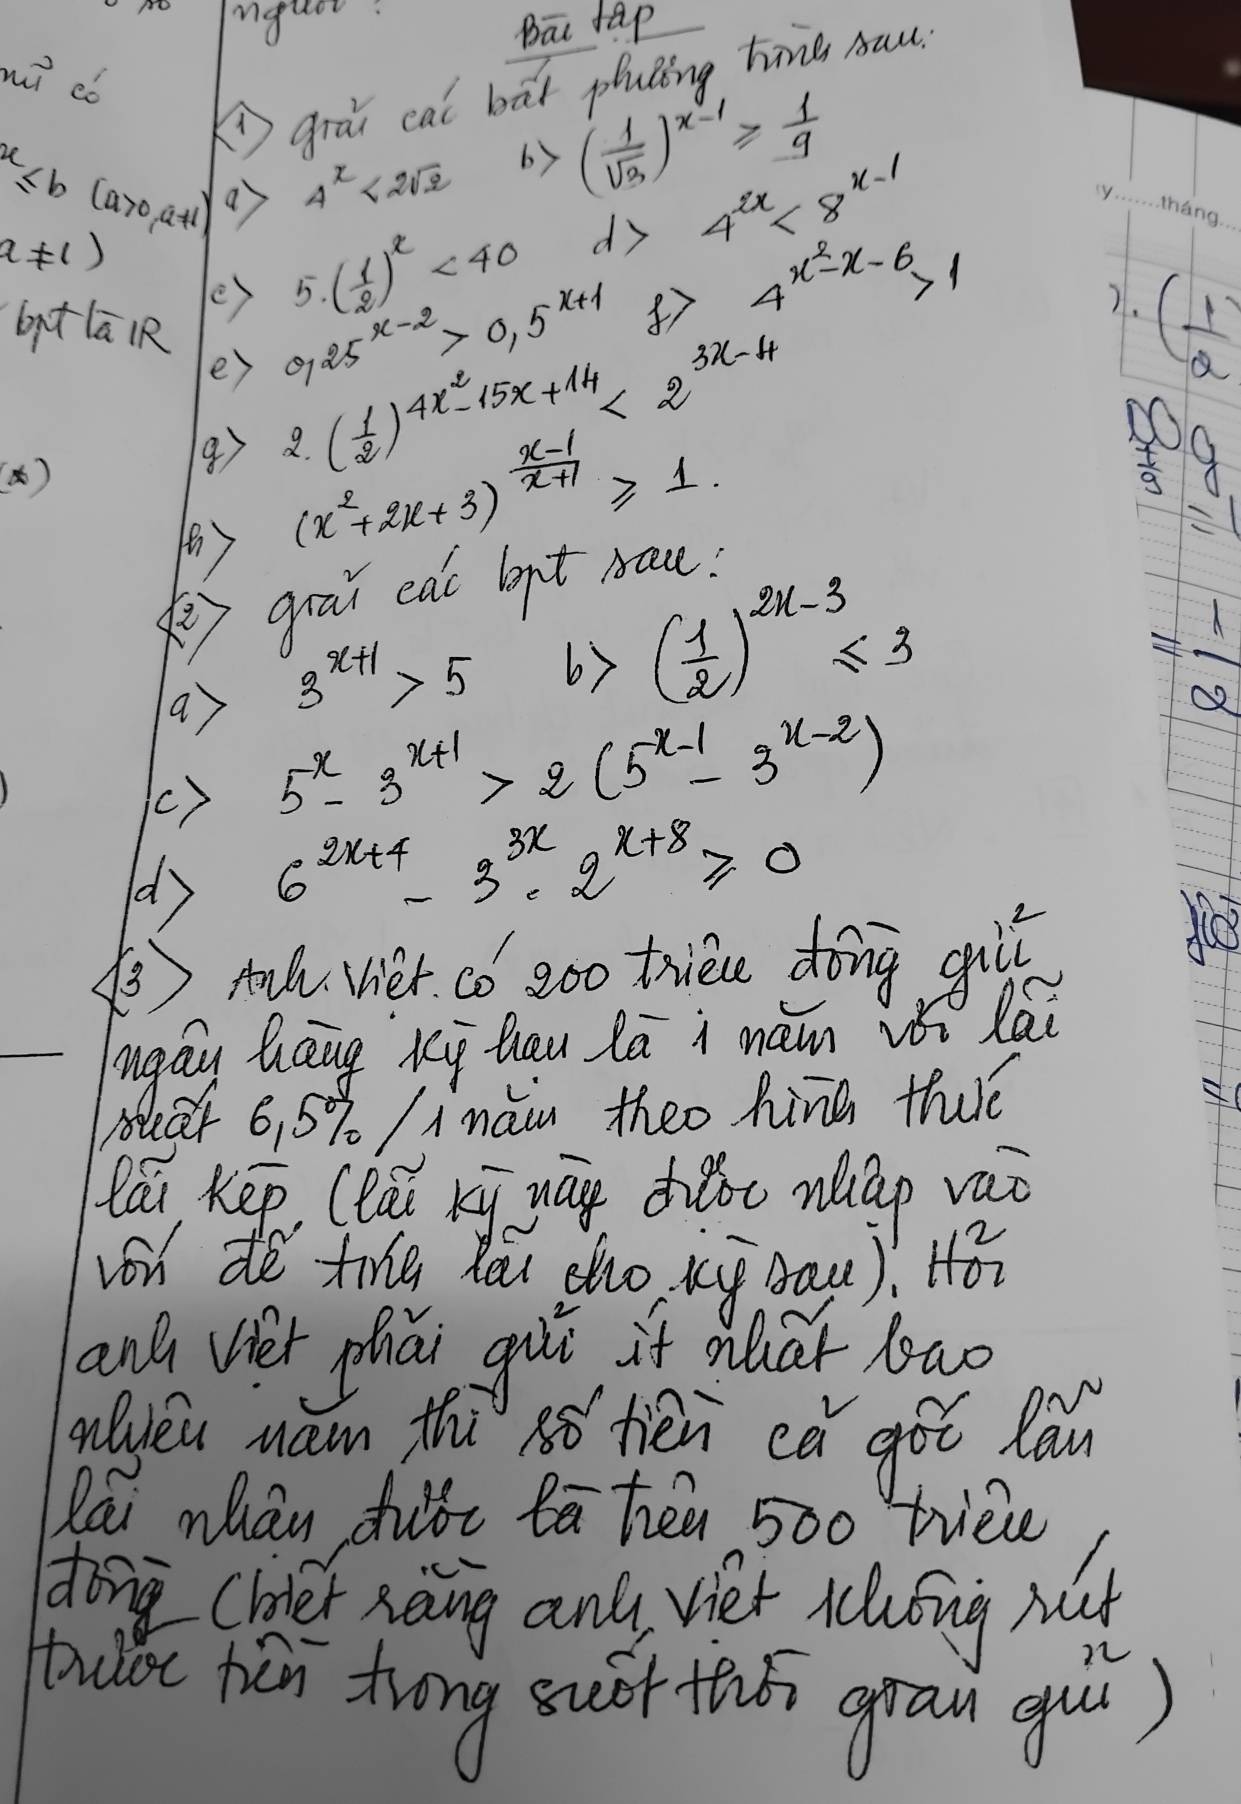 Bài tập
mũ có
① giải các bất phương trình sau:
x ≤ b (a>0, a≠1)
a> 4^x < 2√2 b> (1/√3)^(x-1) ≥ 1/9
a≠1)
c> 5.(1/2)^x < 40 d> 4^(2x) < 8^(x-1)
bpt là ℝ
e> 0,25^(x-2) > 0,5^(x+1) f> 4^(x²-x-6) > 1
g> 2.(1/2)^(4x²-15x+14) < 2^(3x-4)
(*)
h> (x²+2x+3)^((x-1)/(x+1)) ≥ 1.
② giải các bpt sau:
a> 3^(x+1) > 5 b> (1/2)^(2x-3) ≤ 3
c> 5^x - 3^(x+1) > 2(5^(x-1) - 3^(x-2))
d> 6^(2x+4) - 3^(3x) . 2^(x+8) ≥ 0
③ Anh Việt có 200 triệu đồng gửi
ngân hàng kỳ hạn là 1 năm với lãi
suất 6,5% /1 năm theo hình thức
lãi kép (lãi kỳ này được nhập vào
vốn để tính lãi cho kỳ sau). Hỏi
anh Việt phải gửi ít nhất bao
nhiêu năm thì số tiền cả gốc lẫn
lãi nhận được là trên 500 triệu
đồng (biết rằng anh Việt không rút
trước tiền trong suốt thời gian gửi)
tháng